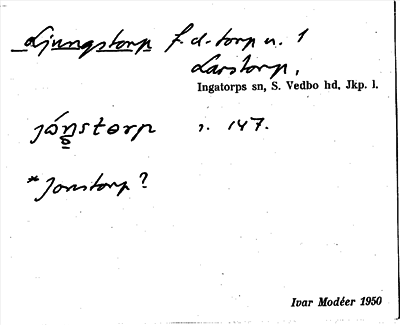 Ljungstorp f.d. torp u. 1
Larstorp,
Ingatorps sn, S. Vedbo hd, Jkp. l.
s. 147.
*Jonstorp?
Ivar Modéer 1950